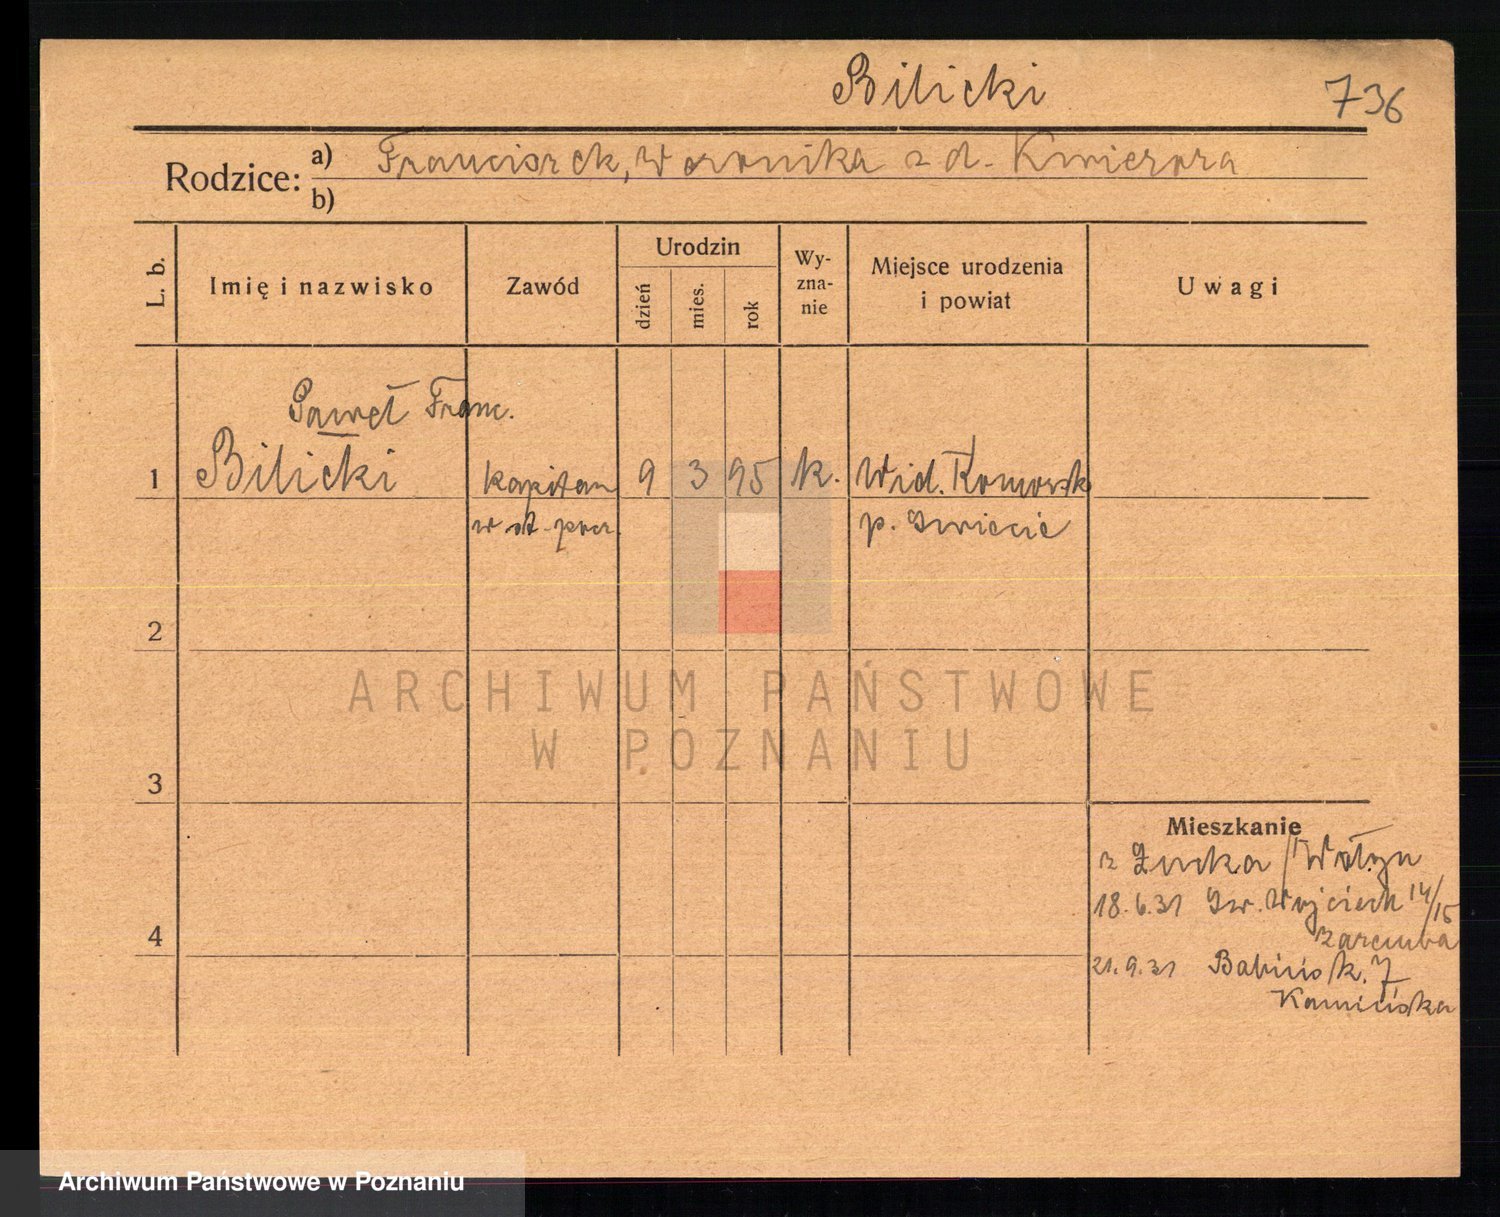 Bilicki 736
Rodzice: a) Franciszek, Weronika z d. Kmiecrora
b)
L. b. Imię i nazwisko Zawód Urodzin dzień mies. rok Wy-zna-nie Miejsce urodzenia i powiat Uwagi
Paweł Franc.
1 Bilicki kapitan 9 3 95 k. Wid. Komorsk
w st. p. p. Świecie
2
ARCHIWUM PAŃSTWOWE
W POZNANIU
3
Mieszkanie
z Łucka / Wołyn
18.6.31 Św. Wojciech 14/15
Zaremba
4
21.9.31 Babińsk. 7
Kamińska
Archiwum Państwowe w Poznaniu